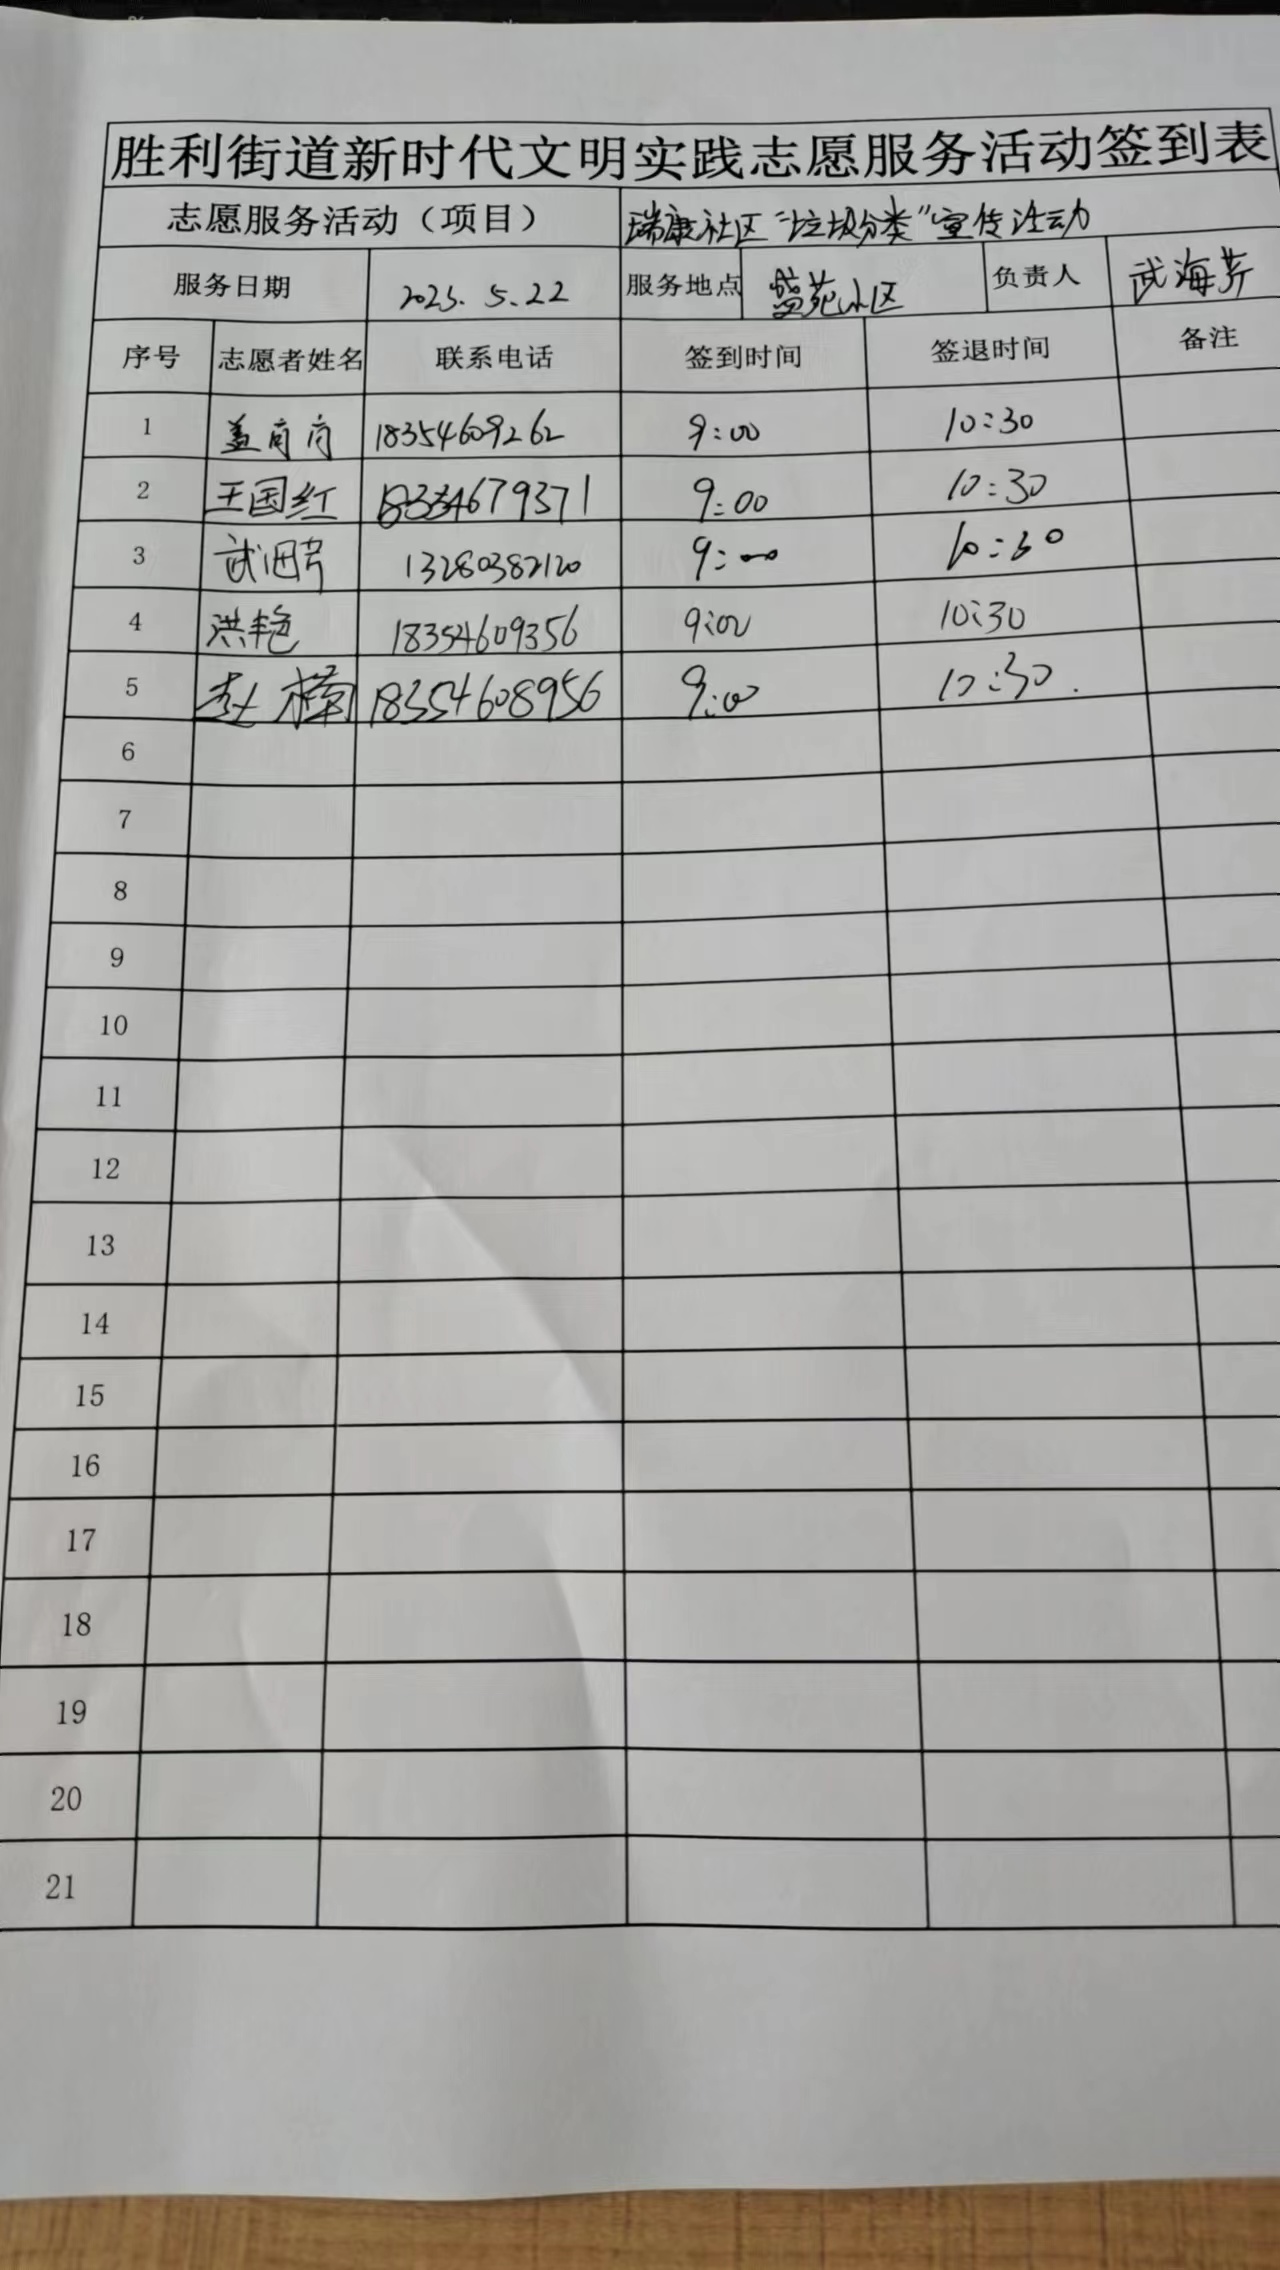 胜利街道新时代文明实践志愿服务活动签到表
志愿服务活动（项目） 瑞康社区“垃圾分类”宣传活动
服务日期 2023.5.22 服务地点 盛苑小区 负责人 武海芹
序号 志愿者姓名 联系电话 签到时间 签退时间 备注
1 盖商商 18354609262 9:00 10:30
2 王国红 9:00 10:30
3 武海芹 13280382120 9:00 10:30
4 洪艳 18354609356 9:00 10:30
5 赵楠 18354608956 9:00 10:30.
6
7
8
9
10
11
12
13
14
15
16
17
18
19
20
21